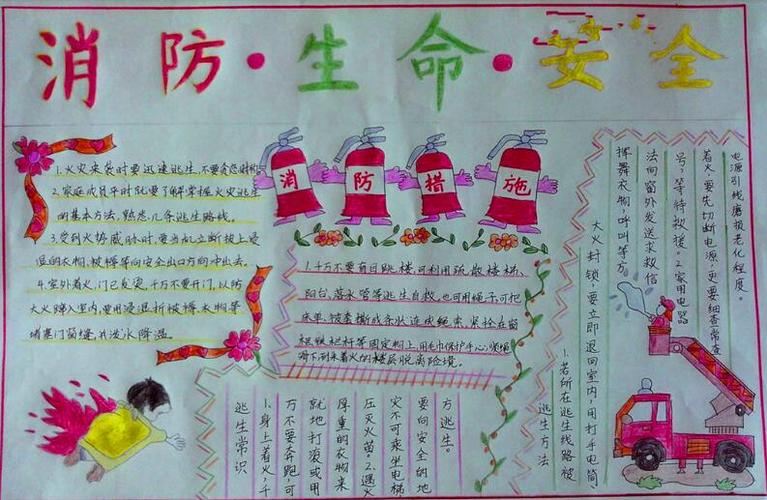 消防·生命·安全
1.火灾来袭时要迅速逃生,不要贪恋财物。
2.家庭成员平时就要了解掌握火灾逃生
的基本方法,熟悉几条逃生路线。
3.受到火势威胁时,要当机立断披上浸
湿的衣物、被褥等向安全出口方向冲出去。
4.室外着火,门已发烫,千万不要开门,以防
大火蹿入室内,要用浸湿的被褥、衣物等
堵塞门窗缝,并泼水降温。
消防措施
1.千万不要盲目跳楼,可利用疏散楼梯、
阳台、落水管等逃生自救。也可用绳子可把
床单、被套撕成条状连成绳索,紧拴在窗
框、铁栏杆等固定物上,用毛巾保护手心,顺绳
滑下,到未着火的楼层脱离险境。
逃生常识
1.身上着火,千
万不要奔跑,可
就地打滚或用
厚重的衣物来
压灭火苗。2.遇火
灾不可乘坐电梯
要向安全的地
方逃生。
逃生方法
1.若所在逃生线路被
大火封锁,要立即退回室内,用打手电筒,
挥舞衣物,呼叫等方
法向窗外发送求救信
号,等待救援。2.家用电器
着火,要先切断电源,更要细查常查
电源引线磨损老化程度。